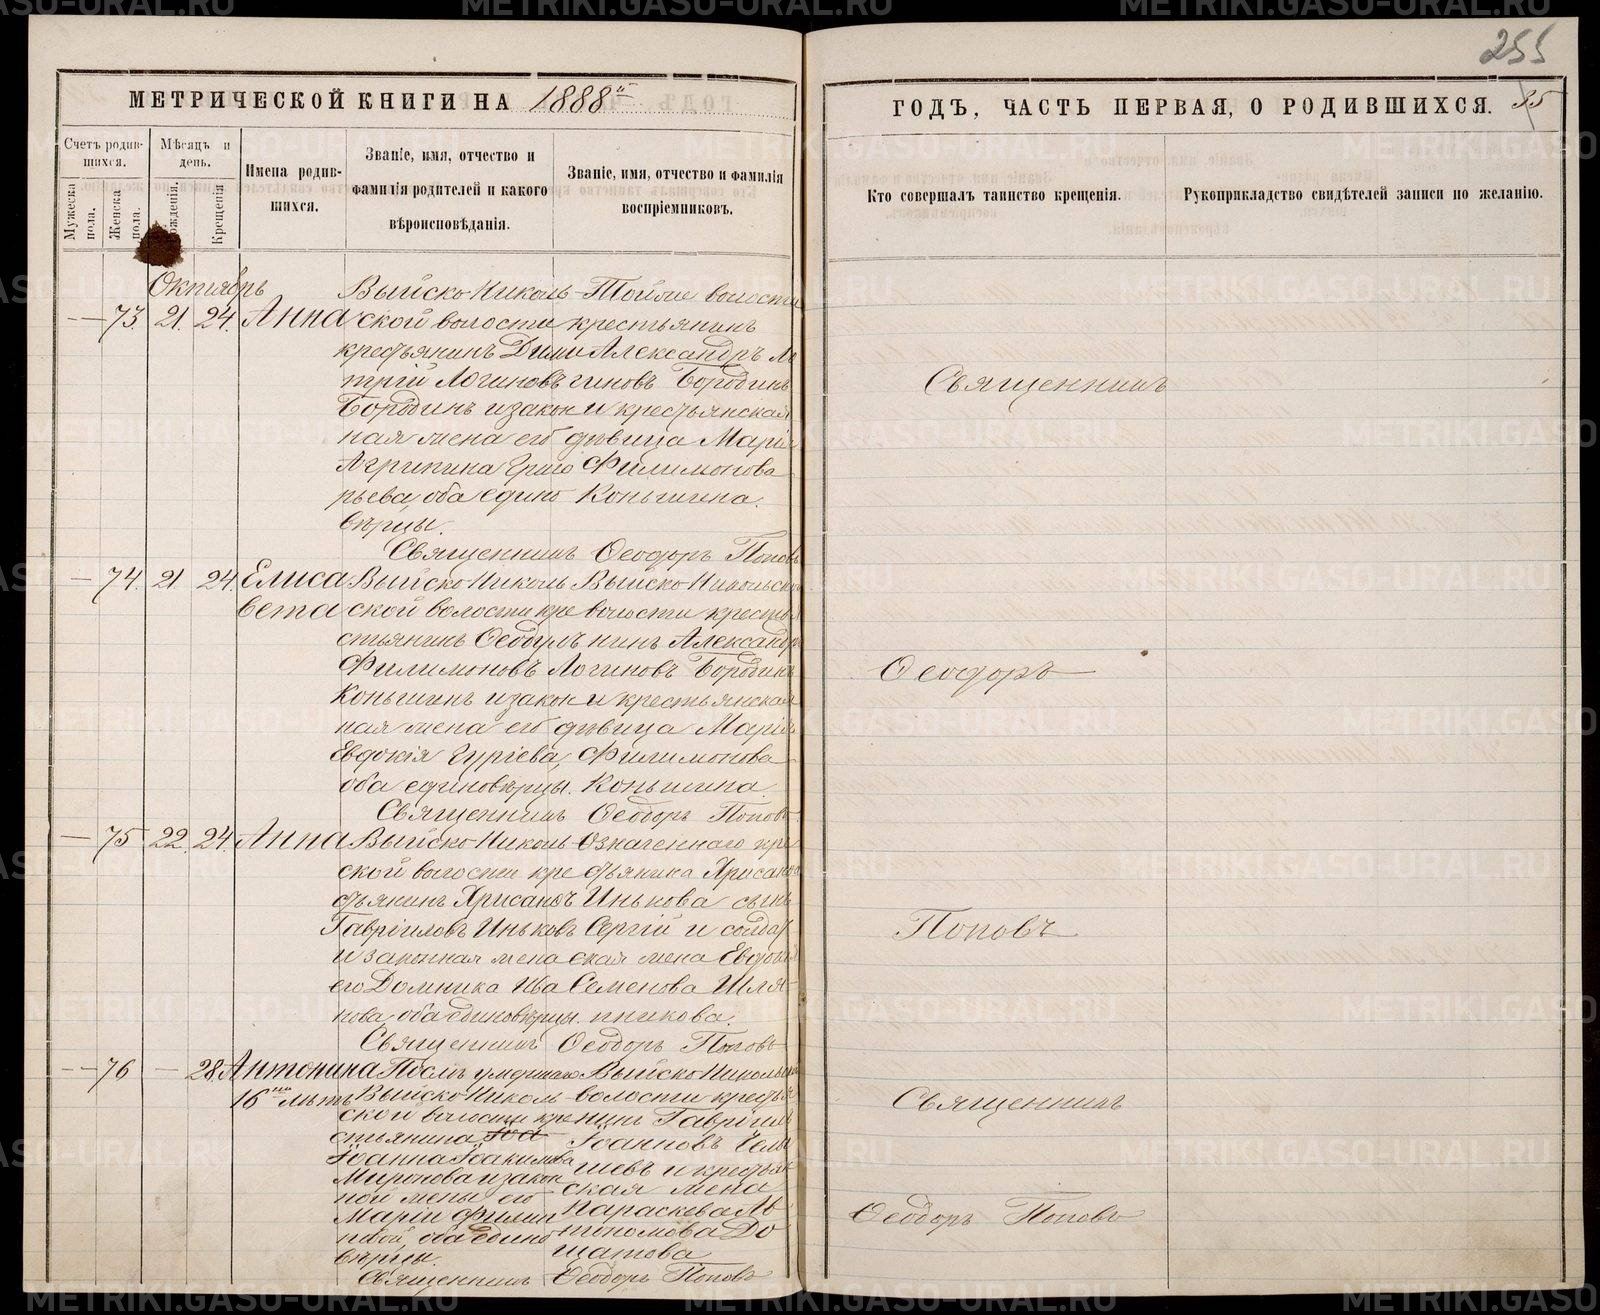 255
МЕТРИЧЕСКОЙ КНИГИ НА 1888й
ГОДЪ, ЧАСТЬ ПЕРВАЯ, О РОДИВШИХСЯ.
35
Счетъ родив-
шихся.
Мужеска
пола.
Женска
пола.
Мѣсяцъ и
день.
Рожденія.
Крещенія
Имена родив-
шихся.
Званіе, имя, отчество и
фамилія родителей и какого
вѣроисповѣданія.
Званіе, имя, отчество и фамилія
воспріемниковъ.
Кто совершалъ таинство крещенія.
Рукоприкладство свидѣтелей записи по желанію.
Октябрь
— 73. 21. 24. Анна
Выйско-Николь-
ской волости
крестьянинъ Дими
трій Логиновъ
Бородинъ и закон
ная жена его
Агрипина Григо
рьева, оба едино
вѣрцы.
Тойже волости
крестьянинъ
Александръ Ло
гиновъ Бородинъ
и крестьянская
дѣвица Марія
Филимонова
Коньшина.
Священникъ Ѳеодоръ Поповъ
Священникъ
— 74. 21 24. Елиса
вета
Выйско-Николь
ской волости кре
стьянинъ Ѳеодулъ
Филимоновъ
Коньшинъ и закон
ная жена его
Евдокія Гуріева,
оба единовѣрцы.
Выйско-Никольской
волости крестья
нинъ Александръ
Логиновъ Бородинъ
и крестьянская
дѣвица Марія
Филимонова
Коньшина.
Священникъ Ѳеодоръ Поповъ
Ѳеодоръ
— 75 22. 24. Анна
Выйско-Николь-
ской волости кре
стьянинъ Хрисанѳъ
Гавріиловъ Иньковъ
и законная жена
его Домника Ива
нова, оба единовѣрцы.
Означеннаго кре
стьянина Хрисанѳа
Инькова сынъ
Сергій и солдат
ская жена Евдокія
Семенова Шля
пникова.
Священникъ Ѳеодоръ Поповъ
Поповъ
— 76 — 28. Антонина
16ти лѣтъ
Послѣ умершаго
Выйско-Николь-
ской волости кре
стьянина
Іоанна Іоакимова
Миронова и закон
ной жены его
Маріи Филип
повой, оба едино
вѣрцы.
Выйско-Никольской
волости крестья
нинъ Гавріилъ
Іоанновъ
и крестьян
ская жена
Параскева
Священникъ Ѳеодоръ Поповъ
Священникъ
Ѳеодоръ Поповъ
METRIKI.GASO-URAL.RU